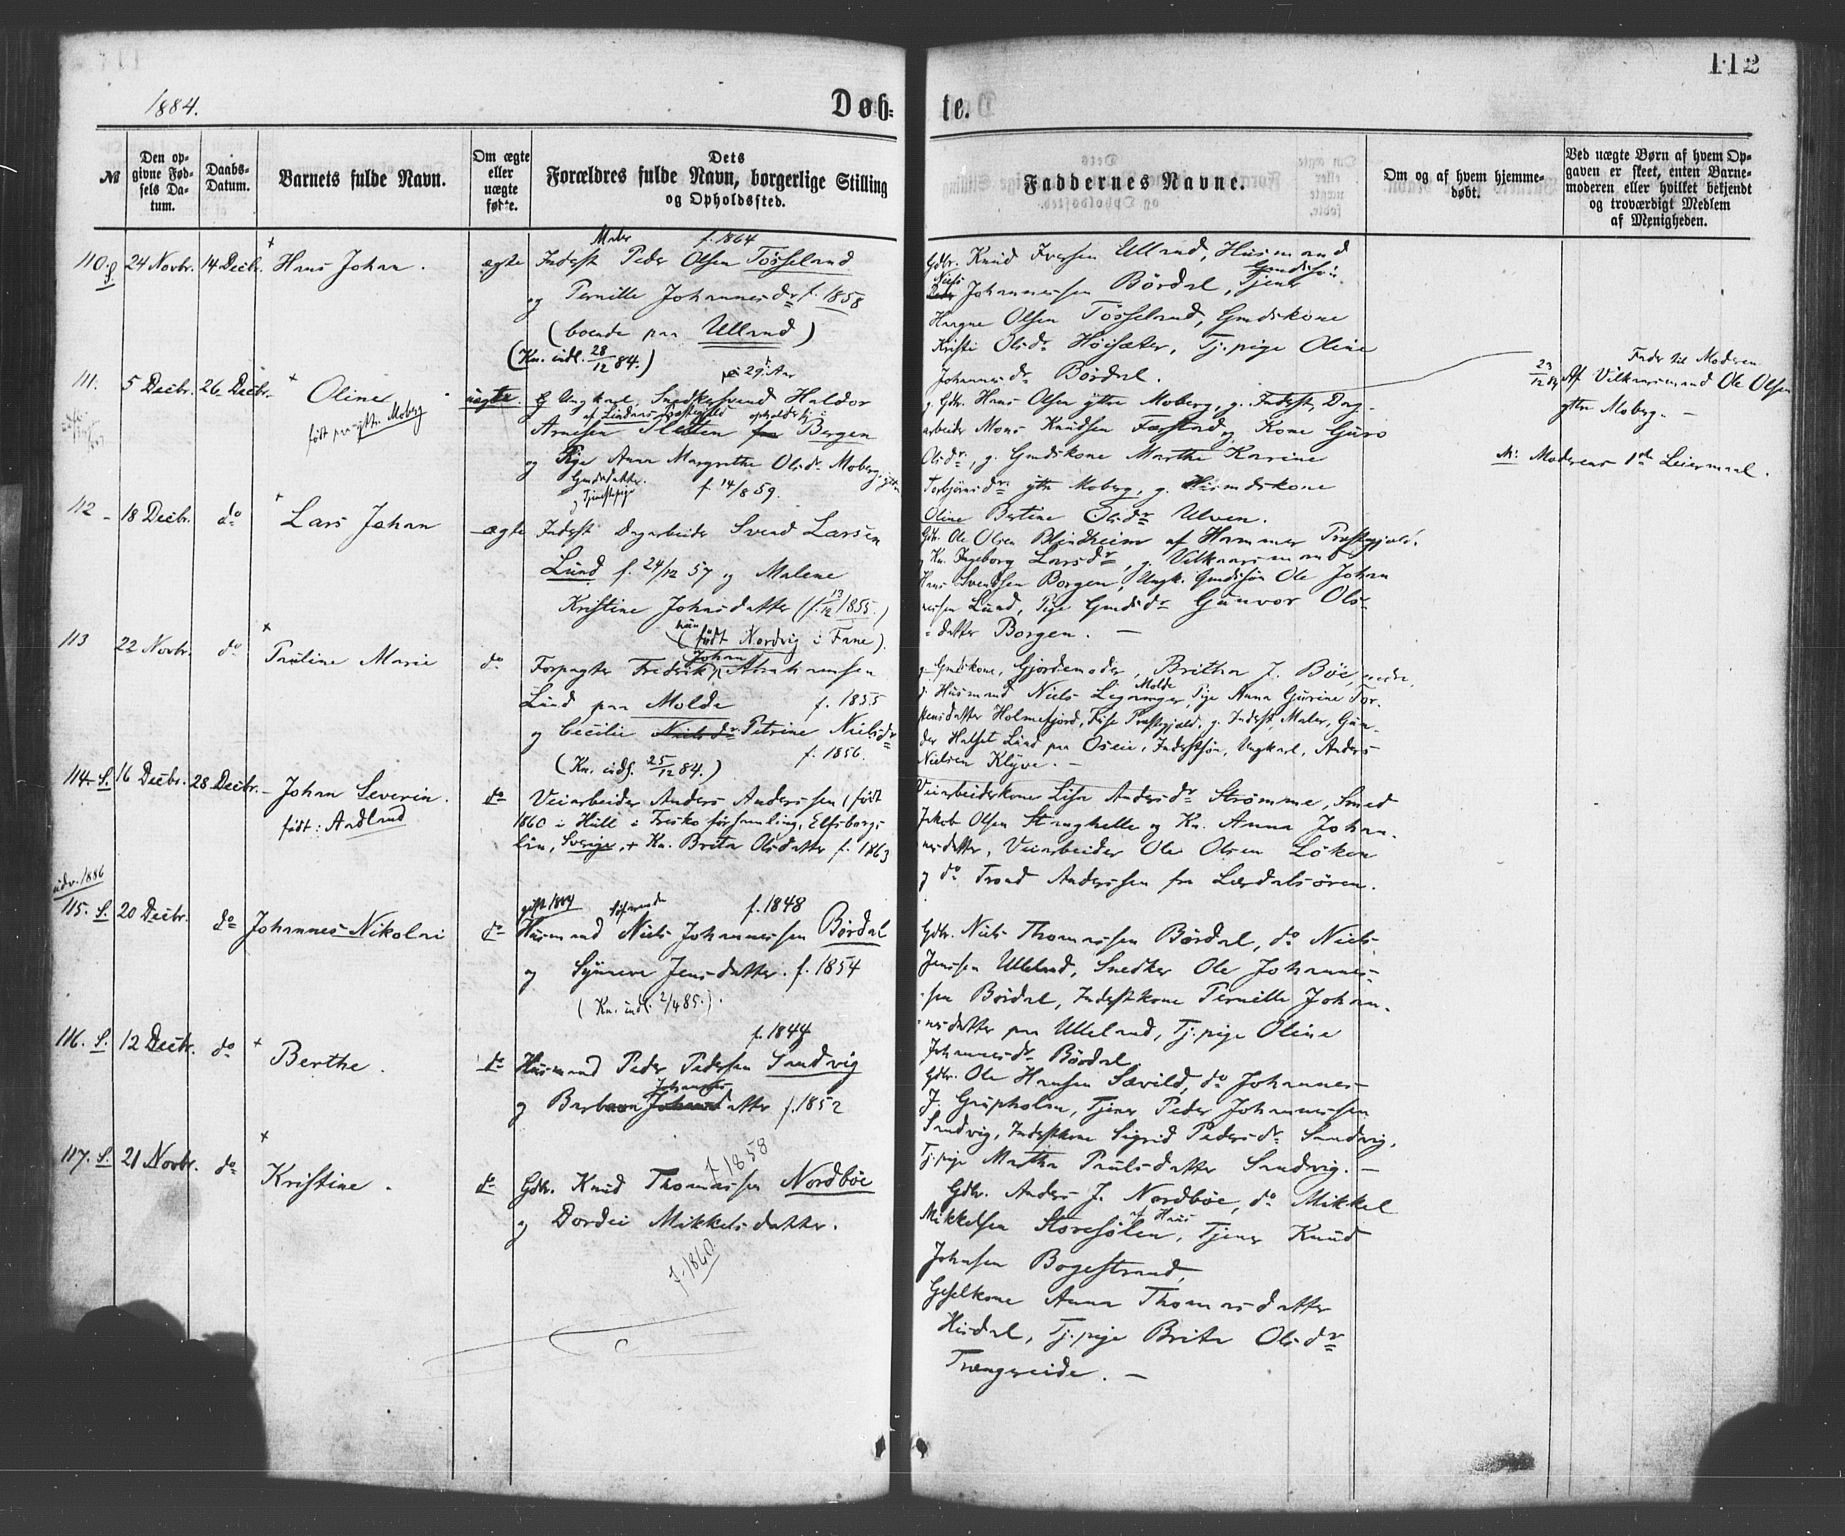 112
1884.
Døb-
te.
№
Den op-
givne Fød-
sels Da-
tum.
Daabs-
Datum.
Barnets fulde Navn.
Om ægte
eller
uægte
født.
Dets
Forældres fulde Navn, borgerlige Stilling
og Opholdssted.
Faddernes Navne.
Om og af hvem hjemme-
døbt.
Ved uægte Børn af hvem Op-
gaven er skeet, enten Barne-
moderen eller hvilket bekjendt
og troværdigt Medlem
af Menigheden.
110. S. 24 Novbr. 14 Decbr. Hans Johan.
ægte Inderst Peder Olsen Tøsseland
Maler f. 1864
og Pernille Johannesdr f. 1858
(boende paa Ulland)
(Kn. indl. 28/12 84.)
Gbr. Knud Iversen Ulland, Husmand
Niels Johannessen Bördal, Tjener Gmdssön
Haagne Olsen Tösseland, Gmdskone
Kristi Olsdr Höisæter, Tj.pige Oline
Johannesdr Bördal.
111. 5 Decbr. 26 Decbr. Oline
født paa ytre Moberg
uægte. Ungkarl, Snedkersvend Haldor
29 Aar
Arnesen Sletten Bergen
og Pige Anna Margrethe Olsdr Moberg, ytre
Gmdsdatter.
Tjenestepige
f 14/8 59.
g. Gbr. Hans Olsen ytre Moberg, g. Inderst, Dag-
arbeider Mons Knudsen Færstad og Kone Guro
Olsdr, g. Gmdskone Marthe Karine
Torbjörnsdr ytre Moberg, g. Husmdskone
Oline Bertine Olsdr Ulven.
23/12 84 Af Fader til Moderen
Vilkaarsmand Ole Olsen
ytre Moberg. –
M: Moderens 1ste Leiermaal.
112 – 18 Decbr. do Lars Johan
ægte Inderst Dagarbeider Svend Larsen
Lund f. 24/12 57 og Malene
Kristine Johnsdatter (f. 13/12 1855.)
(hun født Nordvig i Fane).
Gbr. Ole Olsen Blindheim af Hammer Præstegjeld.
og Kn. Ingeborg Larsdr, g. Vilkaarsmand
Hans Svendsen Borgen, Ungk. Gmdssön Ole Johan-
nessen Lund, Pige Gmdsdr Gunvor Ols-
datter Borgen. –
113 22 Novbr. do Pauline Marie
do Forpagter Fredrik Johan Abrahamsen
Lund paa Molde f. 1855
og Cecilie Petrine Nielsdr
f. 1856.
(Kn. indl. 25/12 84.)
g. Gmdskone, Gjordemoder, Britha J. Böe, nedre,
g. Husmand Niels Leganger, Molde, Pige Anna Gurine Tor-
stensdatter Holmefjord, Fuse Præstegjeld, g. Inderst, Maler, Gun-
der Halset Lund paa Oseie, Inderstsön, Ungkarl, Anders
Nielsen Klyve. –
114. S. 16 Decbr. 28 Decbr. – Johan Severin.
født: Aadland
do Veiarbeider Anders Anderssen (født
1860 i Hull i Tresko forsamling, Elfsborgs
län, Sverige, + Kn. Brita Olsdatter f. 1863
Veiarbeiderkone Lisa Andersdr Strømme, Smed
Jakob Olsen Stanghelle og Kn. Anna Johan-
nesdatter, Veiarbeider Ole Olsen Löken
og do Trond Anderssen fra Lærdalsören.
udv. 1886
115. S. 20 Decbr. do Johannes Nikolai
gift 1884 f. 1848
do Husmand Niels Johannessen Bördal
og Synneve Jensdatter. f. 1854
(Kn. indl. 2/4 85.).
Gbr. Niels Thomassen Bördal, do Niels
Jenssen Ulleland, Snedker Ole Johannes-
sen Bördal, Inderstkone Pernille Johan-
nesdatter paa Ulleland, Tj.pige Oline
Johannesdr Bördal
116. S. 12 Decbr. do Berthe.
f. 1844
do Husmand Peder Pedersen Sandvig
og Barbara Johannesdatter f. 1852
Gbr. Ole Hansen Sævild, do Johannes
J. Gripholm, Tjener Peder Johannessen
Sandvig, Inderstkone Sigrid Pedersdr Sandvig,
Tj.pige Martha Paulsdatter Sandvig. –
117. S. 21 Novbr. do Kristine.
f 1858
do Gbr. Knud Thomassen Nordböe
og Dordei Mikkelsdatter.
f. 1860
Gbr. Anders J. Nordböe, do Mikkel
Mikkelsen Storesölen, af Haus Tjener Knud
Johnsen Bogestrand,
Geselkone Anna Thomasdatter
Husdal, Tj.pige Brita Olsdr
Trængereide. –